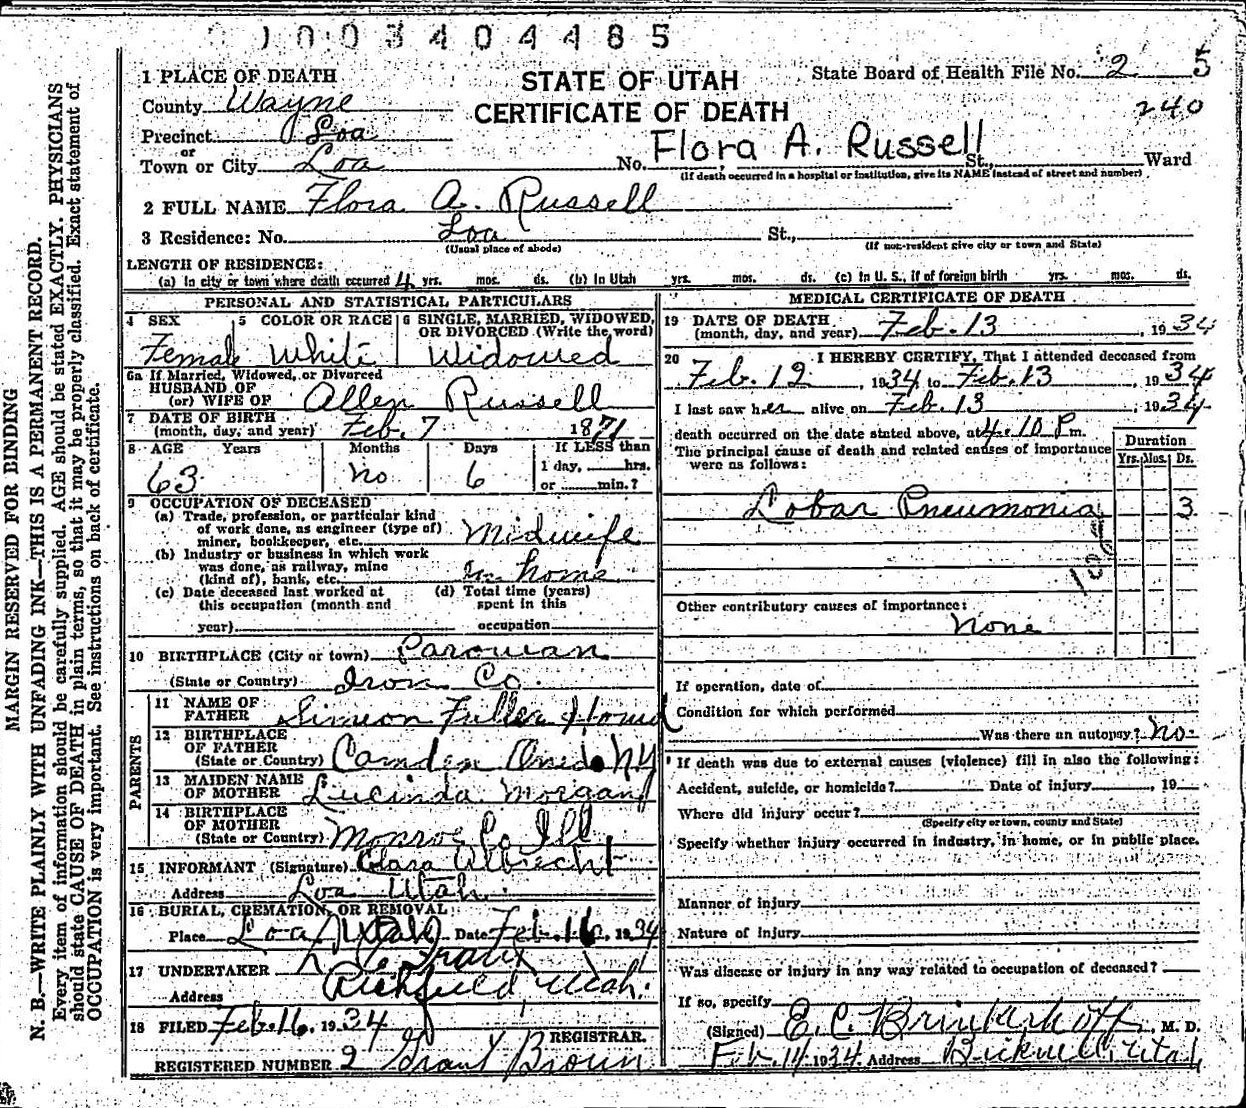 1003404485
STATE OF UTAH
CERTIFICATE OF DEATH
State Board of Health File No. 2 5
240
1 PLACE OF DEATH
County Wayne
Precinct Loa
or
Town or City Loa No. Flora A. Russell St., Ward
(If death occurred in a hospital or institution, give its NAME instead of street and number)
2 FULL NAME Flora A. Russell
3 Residence: No. Loa St.,
(Usual place of abode) (If non-resident give city or town and State)
LENGTH OF RESIDENCE:
(a) In city or town where death occurred 4 yrs. mos. ds. (b) In Utah yrs. mos. ds. (c) In U. S., if of foreign birth yrs. mos. ds.
PERSONAL AND STATISTICAL PARTICULARS
4 SEX 5 COLOR OR RACE 6 SINGLE, MARRIED, WIDOWED, OR DIVORCED (Write the word)
Female White Widowed
6a If Married, Widowed, or Divorced
HUSBAND OF
(or) WIFE OF Allen Russell
7 DATE OF BIRTH
(month, day, and year) Feb. 7 1871
8 AGE Years Months Days If LESS than
1 day, hrs.
63 no 6 or min.?
9 OCCUPATION OF DECEASED
(a) Trade, profession, or particular kind
of work done, as engineer (type of)
miner, bookkeeper, etc. Midwife
(b) Industry or business in which work
was done, as railway, mine
(kind of), bank, etc. In home
(c) Date deceased last worked at
this occupation (month and
year)
(d) Total time (years)
spent in this
occupation
10 BIRTHPLACE (City or town) Parowan
(State or Country) Iron Co.
PARENTS
11 NAME OF
FATHER Simeon Fuller Howd
12 BIRTHPLACE
OF FATHER
(State or Country) Camden Oneida NY
13 MAIDEN NAME
OF MOTHER Lucinda Morgan
14 BIRTHPLACE
OF MOTHER
(State or Country) Monroe Co Ill
15 INFORMANT (Signature) Clara Albrecht
Address Loa Utah
16 BURIAL, CREMATION, OR REMOVAL
Place Loa, Utah Date Feb. 16, 1934
17 UNDERTAKER
Address Richfield, Utah.
18 FILED Feb. 16, 1934
REGISTRAR.
REGISTERED NUMBER 2 Grant Brown
MEDICAL CERTIFICATE OF DEATH
19 DATE OF DEATH
(month, day, and year) Feb. 13, 1934
20 I HEREBY CERTIFY, That I attended deceased from
Feb. 12, 1934 to Feb. 13, 1934
I last saw her alive on Feb. 13, 1934
death occurred on the date stated above, at 4:10 P m.
The principal cause of death and related causes of importance
were as follows:
Duration
Yrs. Mos. Ds.
Lobar Pneumonia 3
108
Other contributory causes of importance:
None
If operation, date of
Condition for which performed
Was there an autopsy? No
If death was due to external causes (violence) fill in also the following:
Accident, suicide, or homicide? Date of injury, 19
Where did injury occur?
(Specify city or town, county and State)
Specify whether injury occurred in industry, in home, or in public place.
Manner of injury
Nature of injury
Was disease or injury in any way related to occupation of deceased?
If so, specify
(Signed) E. C. Brinkerhoff, M. D.
Feb. 14 1934 Address Bicknell, Utah
MARGIN RESERVED FOR BINDING
N. B.—WRITE PLAINLY WITH UNFADING INK—THIS IS A PERMANENT RECORD.
Every item of information should be carefully supplied. AGE should be stated EXACTLY. PHYSICIANS
should state CAUSE OF DEATH in plain terms, so that it may be properly classified. Exact statement of
OCCUPATION is very important. See instructions on back of certificate.